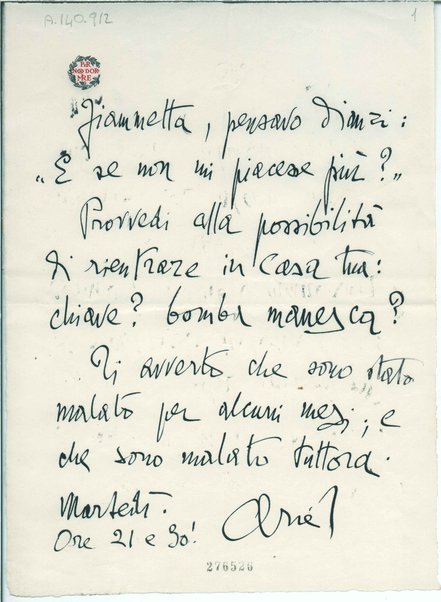 A.140.912
1
PER
NON DOR
MIRE
Giammetta, pensavo dianzi:
"E se non mi piacesse più?"
Provvedi alla possibilità
di rientrare in casa tua:
chiave? bomba manesca?
Ti avverto che sono stato
malato per alcuni mesi; e
che sono malato tuttora.
Martedì.
Ore 21 e 30!
Ariel
276526